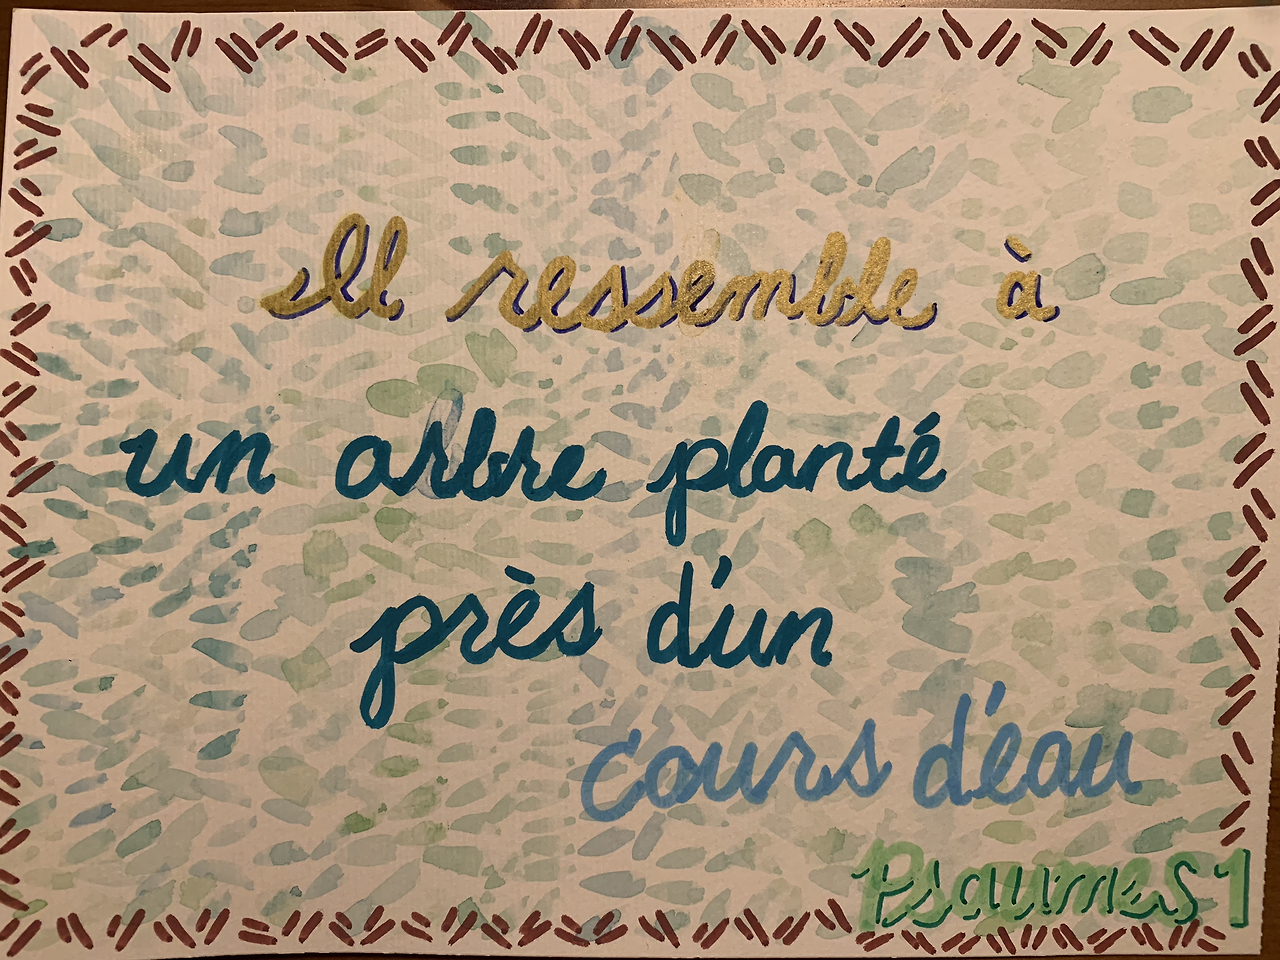 Il ressemble à
un arbre planté
près d'un
cours d'eau
Psaumes 1